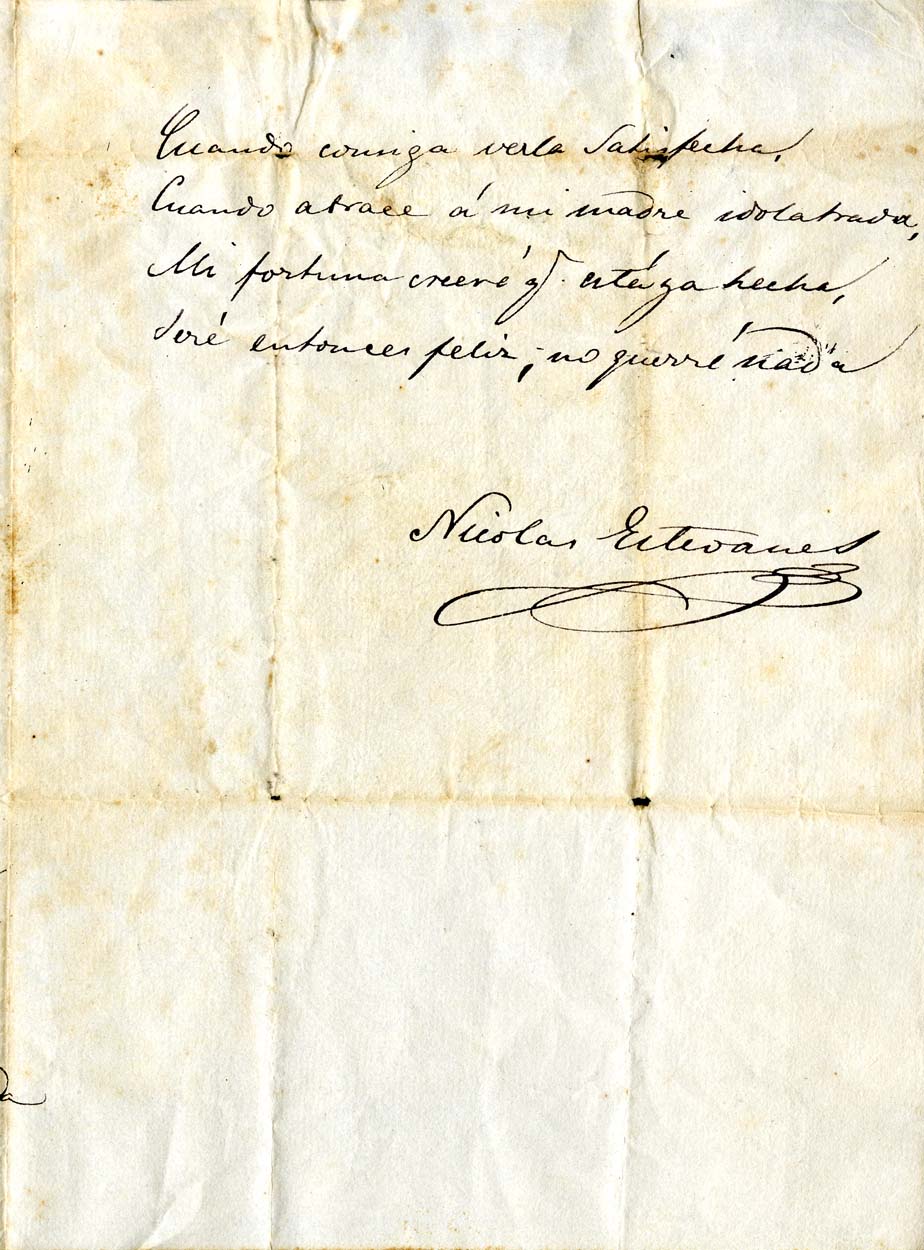 Cuando consiga verla Satisfecha,
Cuando abrace á mi madre idolatrada,
Mi fortuna creeré q. está ya hecha,
Seré entonces feliz; no querré nada
Nicolas Estevanes
da